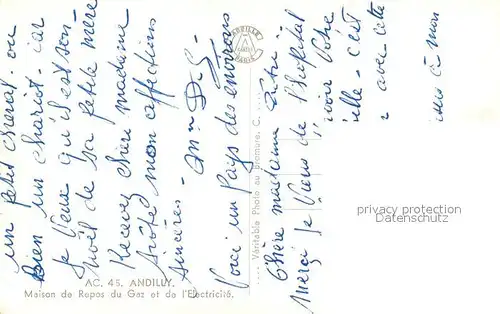 Chère madame
Merci je viens de l'hopital
voir Votre
ille - c'est
avec cette
mis à mon
un petit cheval ou
bien un chariot - car
je veux qu'il est son
noël de sa petite mère
Recevez chère madame
mon affections
sincères - Mme D.G -
Voici un pays des environs
AC. 45. ANDILLY.
Maison de Repos du Gaz et de l'Electricité.
Véritable Photo au bromure, C.
ANDILLE
PARIS
privacy protection
Datenschutz